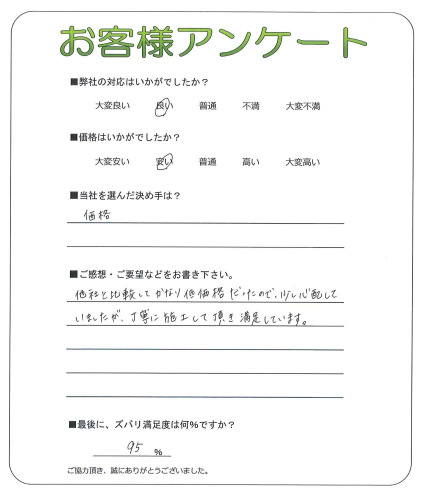 お客様アンケート
■弊社の対応はいかがでしたか?
大変良い 良い 普通 不満 大変不満
■価格はいかがでしたか?
大変安い 安い 普通 高い 大変高い
■当社を選んだ決め手は?
価格
■ご感想・ご要望などをお書き下さい。
他社と比較してかなり低価格だったので、少し心配して
いましたが、丁寧に施工して頂き満足しています。
■最後に、ズバリ満足度は何%ですか?
95 %
ご協力頂き、誠にありがとうございました。